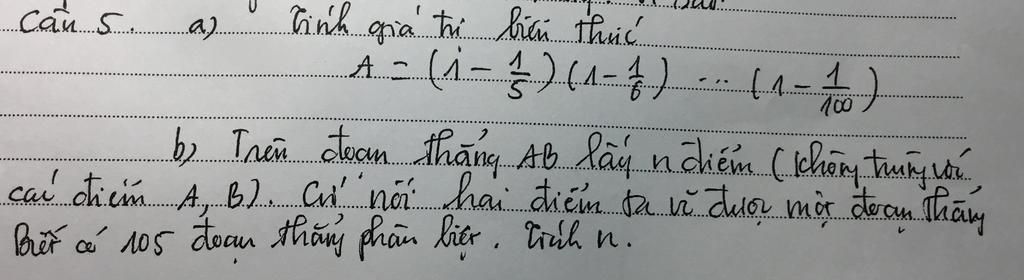 Câu 5. a) Tính giá trị biểu thức
A = (1 - 1/5)(1 - 1/6) ... (1 - 1/100)
b) Trên đoạn thẳng AB lấy n điểm (không trùng với
các điểm A, B). Cứ nối hai điểm ta vẽ được một đoạn thẳng
Biết có 105 đoạn thẳng phân biệt. Tính n.